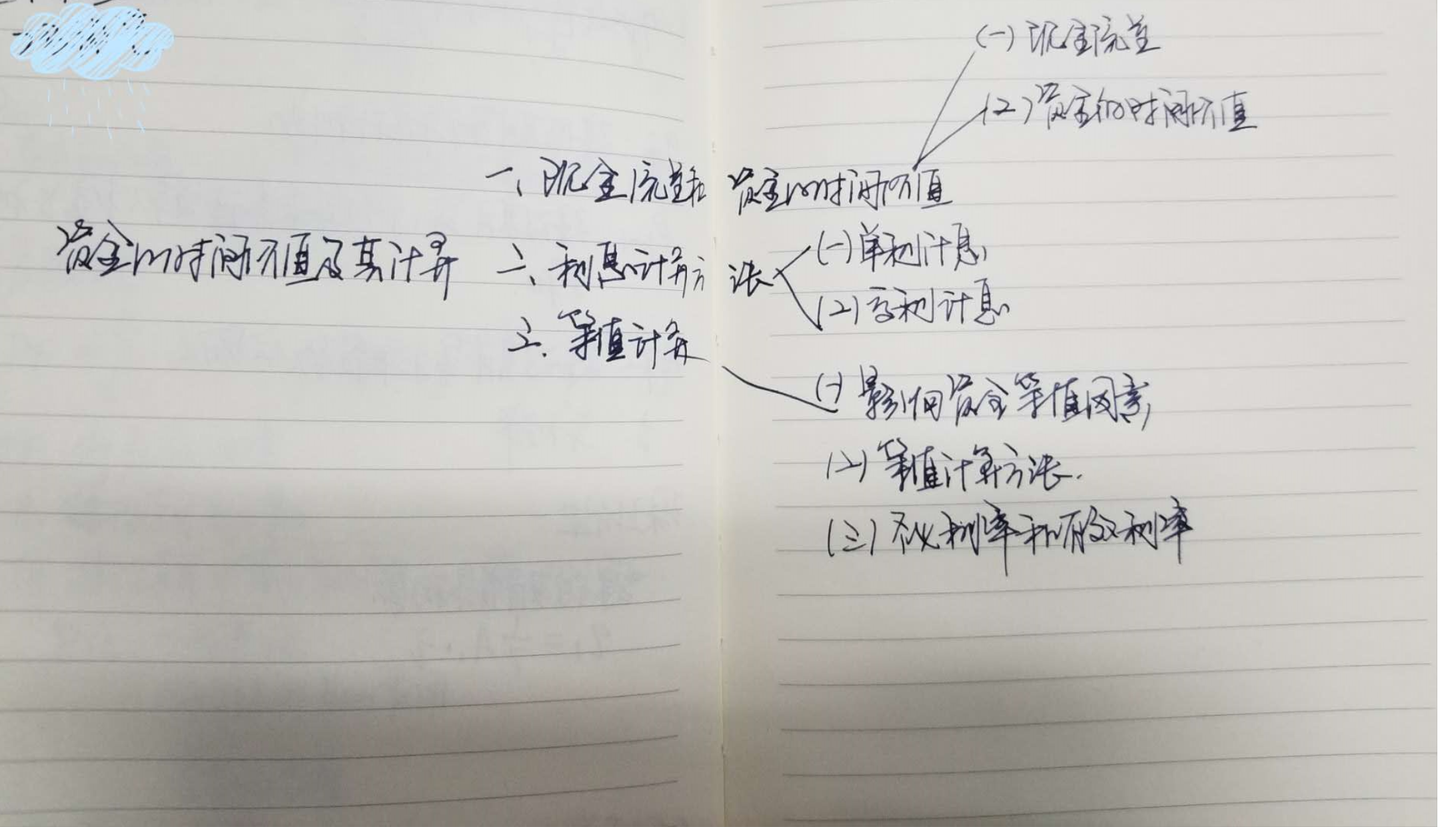 (一) 现金流量
(2) 资金的时间价值
一、现金流量和资金的时间价值
资金的时间价值及其计算
二、利息计算方法
(一) 单利计息
(2) 复利计息
三、等值计算
(一) 影响资金等值因素
(二) 等值计算方法.
(三) 名义利率和有效利率